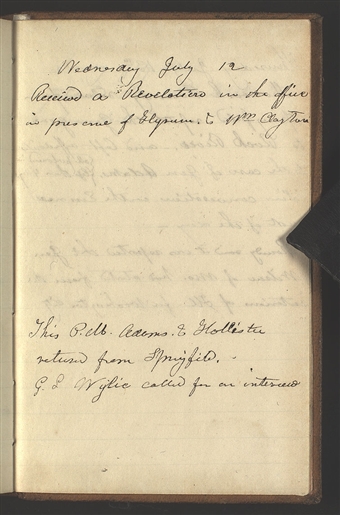 Wednesday July 12
Received a Revelation in the office
in presence of Hyrum. & Wm Clayton
This P.M. Adams. & Hollister
return from Springfild.
G. J. Wylie called for an interview